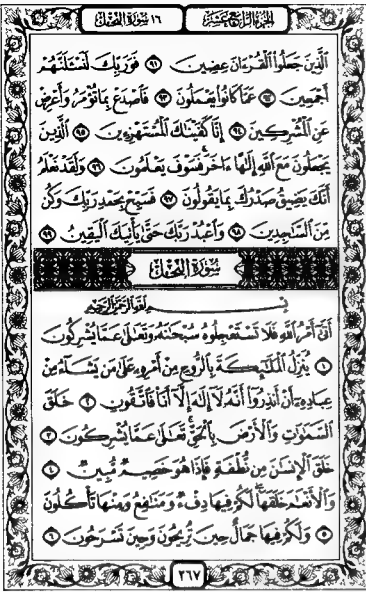 الجزء الرابع عشر
١٦ سورة النحل
الَّذِينَ جَعَلُوا الْقُرْءَانَ عِضِينَ ٩١ فَوَرَبِّكَ لَنَسْـَٔلَنَّهُمْ
أَجْمَعِينَ ٩٢ عَمَّا كَانُوا يَعْمَلُونَ ٩٣ فَاصْدَعْ بِمَا تُؤْمَرُ وَأَعْرِضْ
عَنِ الْمُشْرِكِينَ ٩٤ إِنَّا كَفَيْنَاكَ الْمُسْتَهْزِءِينَ ٩٥ الَّذِينَ
يَجْعَلُونَ مَعَ اللَّهِ إِلَٰهًا ءَاخَرَ فَسَوْفَ يَعْلَمُونَ ٩٦ وَلَقَدْ نَعْلَمُ
أَنَّكَ يَضِيقُ صَدْرُكَ بِمَا يَقُولُونَ ٩٧ فَسَبِّحْ بِحَمْدِ رَبِّكَ وَكُن
مِّنَ السَّاجِدِينَ ٩٨ وَاعْبُدْ رَبَّكَ حَتَّىٰ يَأْتِيَكَ الْيَقِينُ ٩٩
سورة النحل
بِسْمِ اللَّهِ الرَّحْمَٰنِ الرَّحِيمِ
أَتَىٰ أَمْرُ اللَّهِ فَلَا تَسْتَعْجِلُوهُ سُبْحَٰنَهُ وَتَعَٰلَىٰ عَمَّا يُشْرِكُونَ
١ يُنَزِّلُ الْمَلَٰٓئِكَةَ بِالرُّوحِ مِنْ أَمْرِهِ عَلَىٰ مَن يَشَآءُ مِنْ
عِبَادِهِ أَنْ أَنذِرُوا أَنَّهُ لَا إِلَٰهَ إِلَّا أَنَا فَاتَّقُونِ ٢ خَلَقَ
السَّمَٰوَٰتِ وَالْأَرْضَ بِالْحَقِّ تَعَٰلَىٰ عَمَّا يُشْرِكُونَ ٣
خَلَقَ الْإِنسَٰنَ مِن نُّطْفَةٍ فَإِذَا هُوَ خَصِيمٌ مُّبِينٌ ٤
وَالْأَنْعَٰمَ خَلَقَهَا لَكُمْ فِيهَا دِفْءٌ وَمَنَٰفِعُ وَمِنْهَا تَأْكُلُونَ
٥ وَلَكُمْ فِيهَا جَمَالٌ حِينَ تُرِيحُونَ وَحِينَ تَسْرَحُونَ ٦
٢٦٧